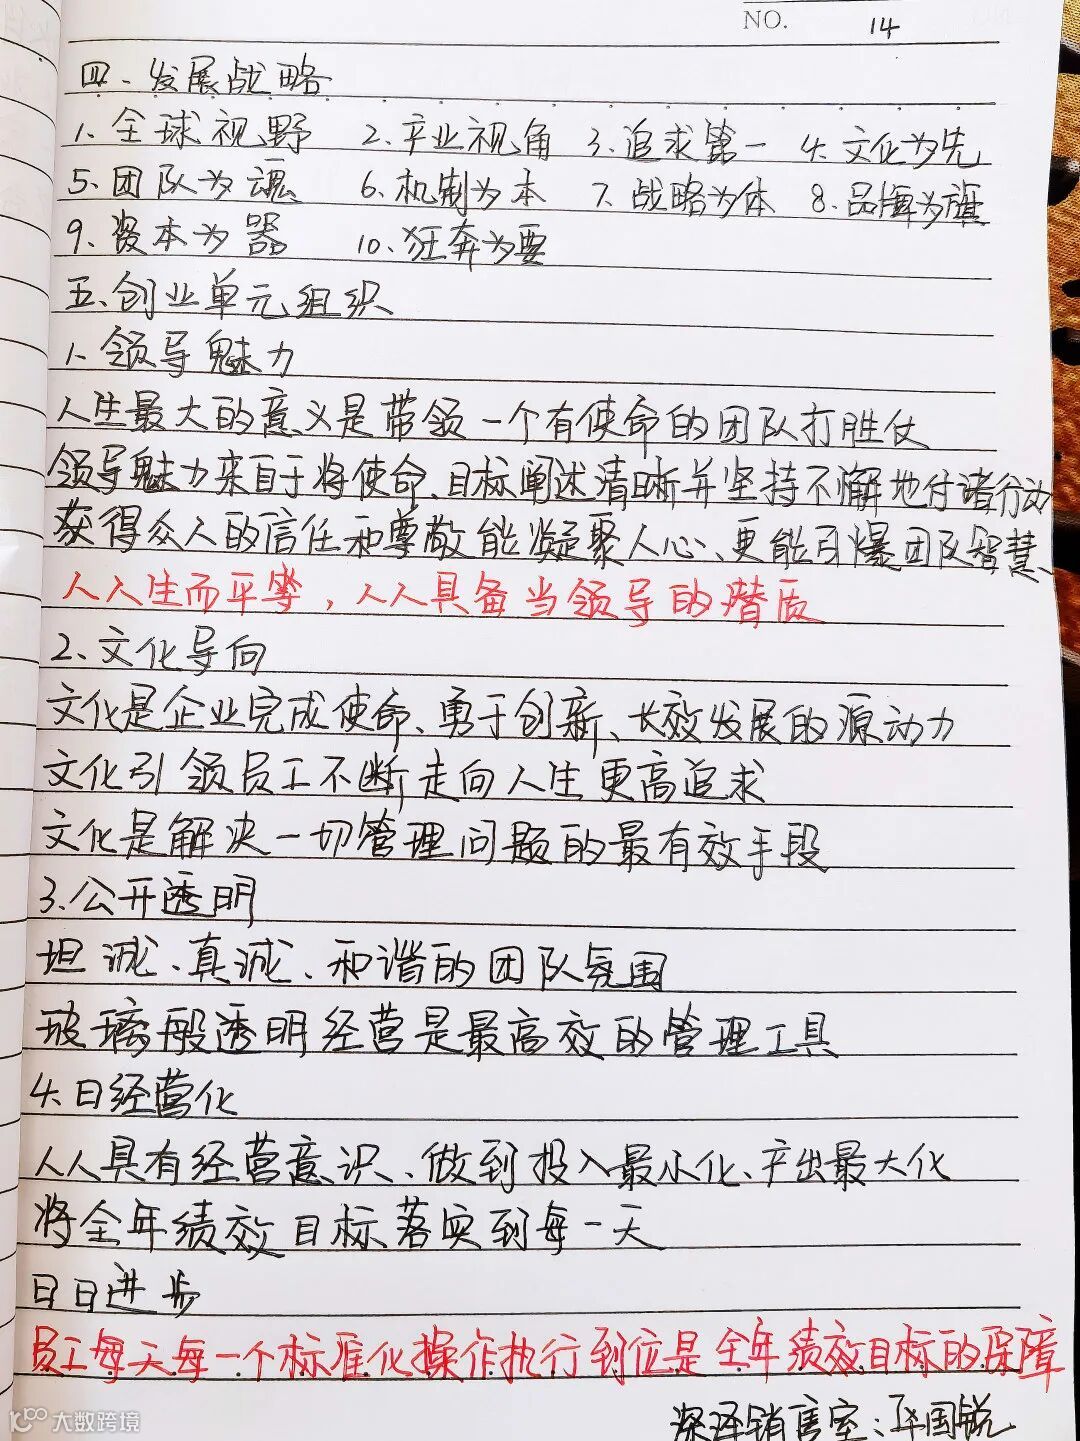 NO. 14
四、发展战略
1、全球视野 2、产业视角 3、追求第一 4、文化为先
5、团队为魂 6、机制为本 7、战略为体 8、品牌为旗
9、资本为器 10、狂奔为要
五、创业单元组织
1、领导魅力
人生最大的意义是带领一个有使命的团队打胜仗
领导魅力来自于将使命、目标阐述清晰并坚持不懈地付诸行动
获得众人的信任和尊敬能凝聚人心、更能引爆团队智慧、
人人生而平等，人人具备当领导的潜质
2、文化导向
文化是企业完成使命、勇于创新、长效发展的源动力
文化引领员工不断走向人生更高追求
文化是解决一切管理问题的最有效手段
3、公开透明
坦诚、真诚、和谐的团队氛围
玻璃般透明经营是最高效的管理工具
4、日经营化
人人具有经营意识、做到投入最小化、产出最大化
将全年绩效目标落实到每一天
日日进步
员工每天每一个标准化操作执行到位是全年绩效目标的保障
深泽销售室：国锐
大数跨境